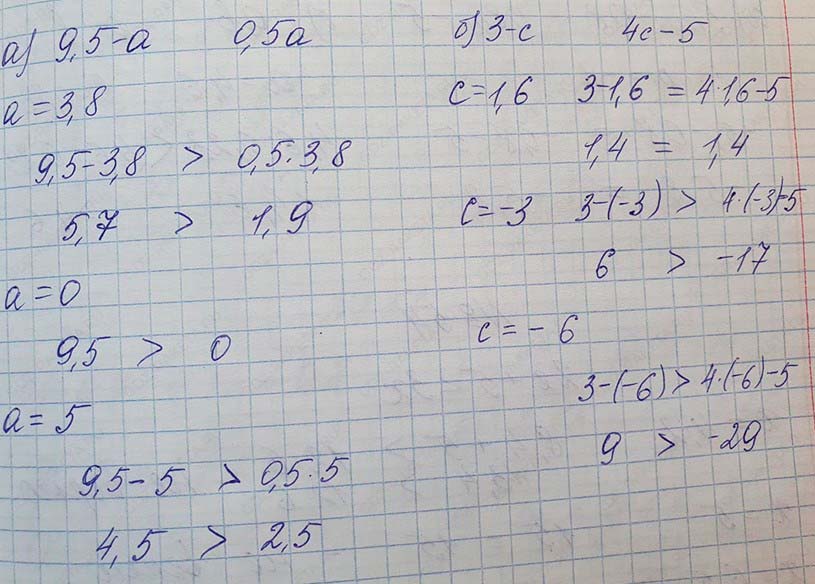 а) 9,5-a 0,5a
a=3,8
9,5-3,8 > 0,5·3,8
5,7 > 1,9
a=0
9,5 > 0
a=5
9,5-5 > 0,5·5
4,5 > 2,5
б) 3-c 4c-5
c=1,6 3-1,6 = 4·1,6-5
1,4 = 1,4
c=-3 3-(-3) > 4·(-3)-5
6 > -17
c=-6
3-(-6) > 4·(-6)-5
9 > -29